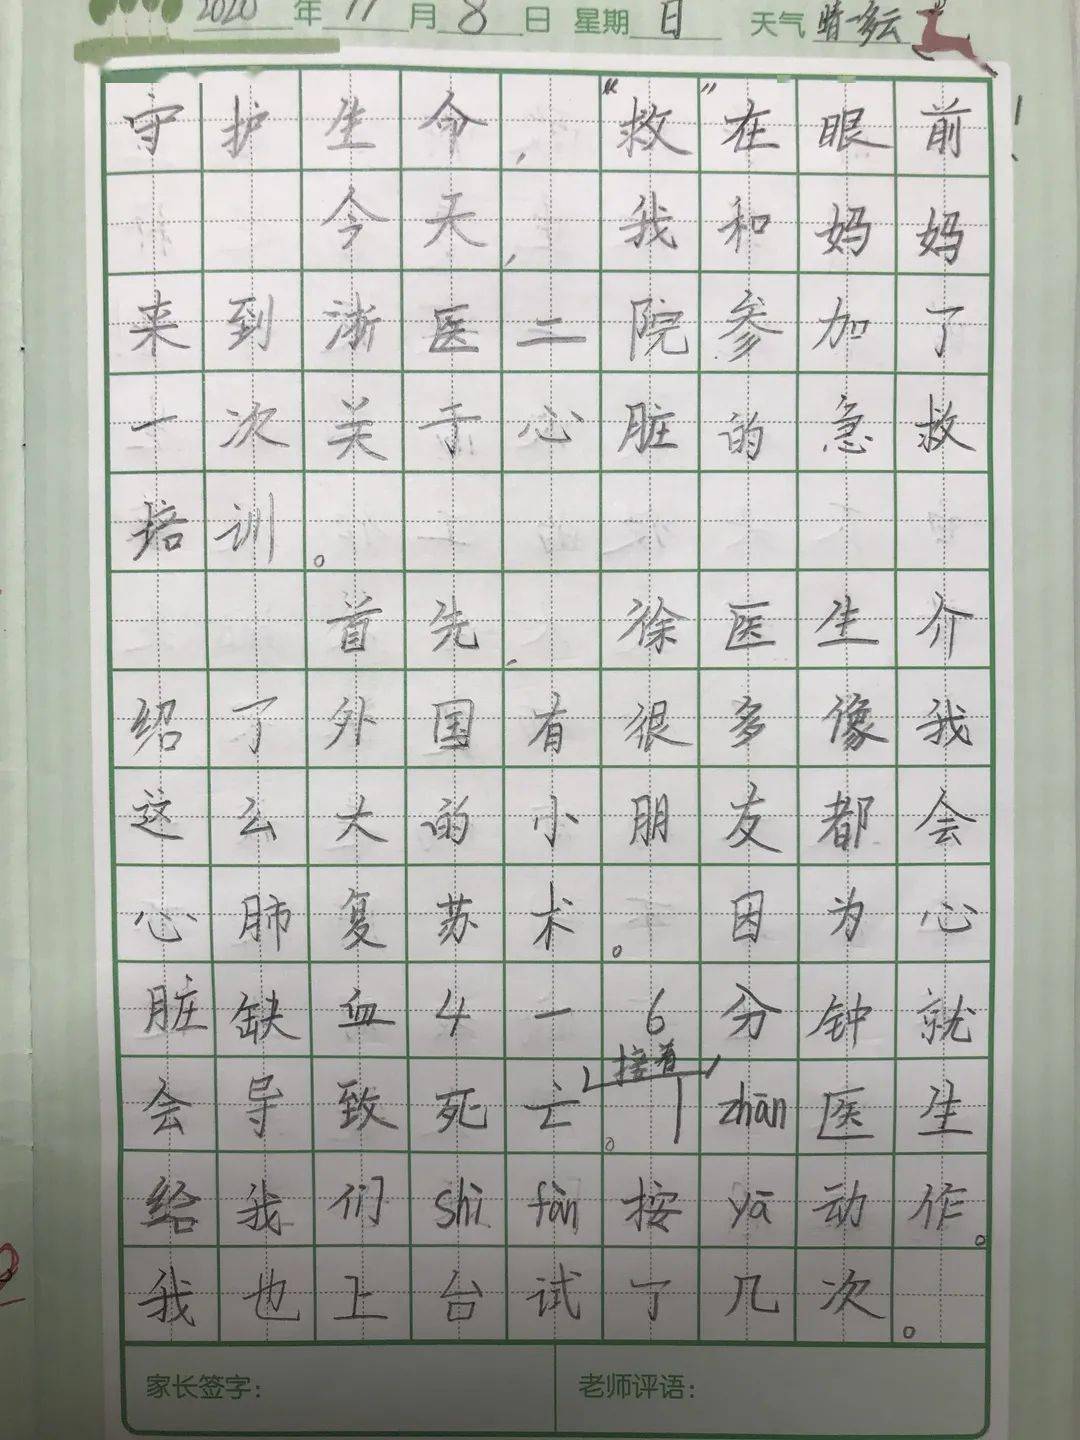 2020年11月8日 星期日 天气 晴-多云
守护生命，“救”在眼前！
今天，我和妈妈
来到浙医二院参加了
一次关于心脏的急救
培训。
首先，徐医生介
绍了外国有很多像我
这么大的小朋友都会
心肺复苏术。因为心
脏缺血4—6分钟就
接着
会导致死亡。zhān医生
给我们shì fàn按yā动作。
我也上台试了几次。
家长签字： 老师评语：